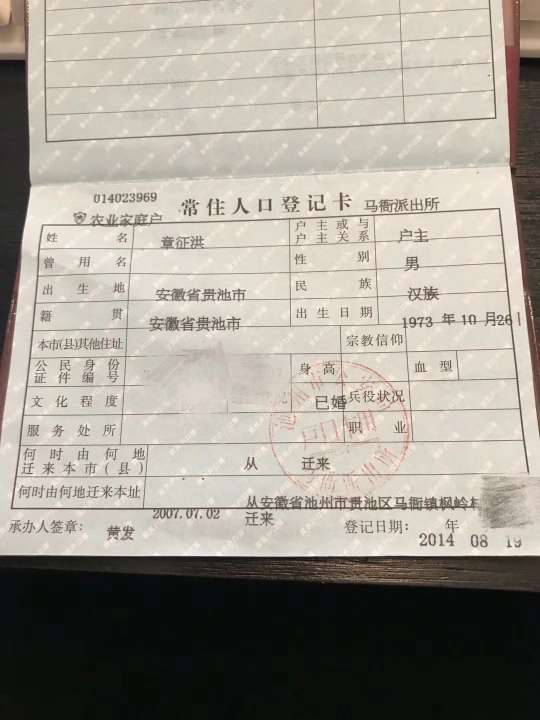 014023969
农业家庭户 常住人口登记卡 马衙派出所
姓名 章征洪 户主或与户主关系 户主
曾用名 性别 男
出生地 安徽省贵池市 民族 汉族
籍贯 安徽省贵池市 出生日期 1973 年 10 月 26
本市(县)其他住址 宗教信仰
公民身份证件编号 身高 血型
文化程度 已婚 兵役状况
服务处所 职业
何时由何地迁来本市(县) 从 迁来
何时由何地迁来本址 2007.07.02 从安徽省池州市贵池区马衙镇枫岭村
迁来
承办人签章: 黄发 登记日期: 年
2014 08 19